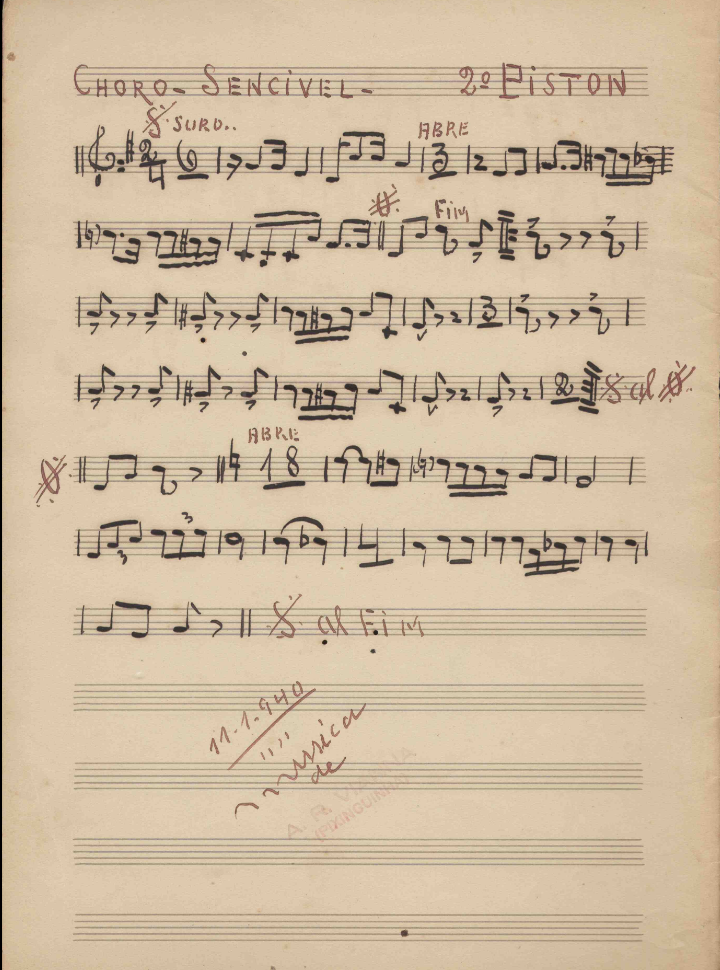 CHORO - SENCIVEL - 2º PISTON
SURD..
ABRE
2 6 3 2
FIM
3 2
2 2 2
al
ABRE
18
3 3
al Fim
11-1-940
musica
de
A. R. VIANNA
(PIXINGUINHA)